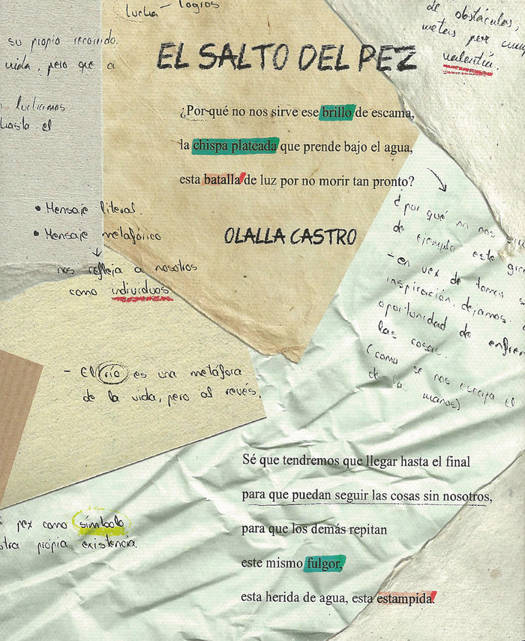 Lucha – logros
de obstáculos,
metas pero
valentía.
su propio recorrido.
vida, pero que a
hasta el
EL SALTO DEL PEZ
¿Por qué no nos sirve ese brillo de escama,
la chispa plateada que prende bajo el agua,
esta batalla de luz por no morir tan pronto?
OLALLA CASTRO
• Mensaje literal.
• Mensaje metafórico
nos refleja a nosotros
como individuos
¿por qué no nos
de ejemplo este
- en vez de
inspiración, dejamos
oportunidad de
las cosas.
(como se nos escapa el
manos)
- El río es una metáfora
de la vida, pero al revés.
Sé que tendremos que llegar hasta el final
para que puedan seguir las cosas sin nosotros,
para que los demás repitan
este mismo fulgor,
esta herida de agua, esta estampida.
pez como símbolo
propia existencia.